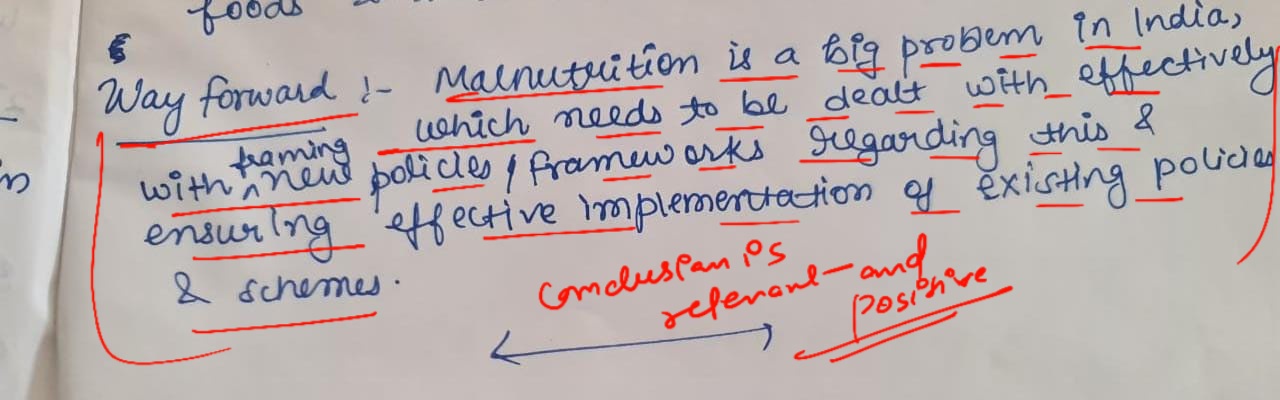 foods
Way forward :- Malnutrition is a big problem in India,
which needs to be dealt with effectively
with framing new policies / frameworks regarding this &
ensuring effective implementation of existing policies
& schemes.
Conclusion is
relevant and
positive